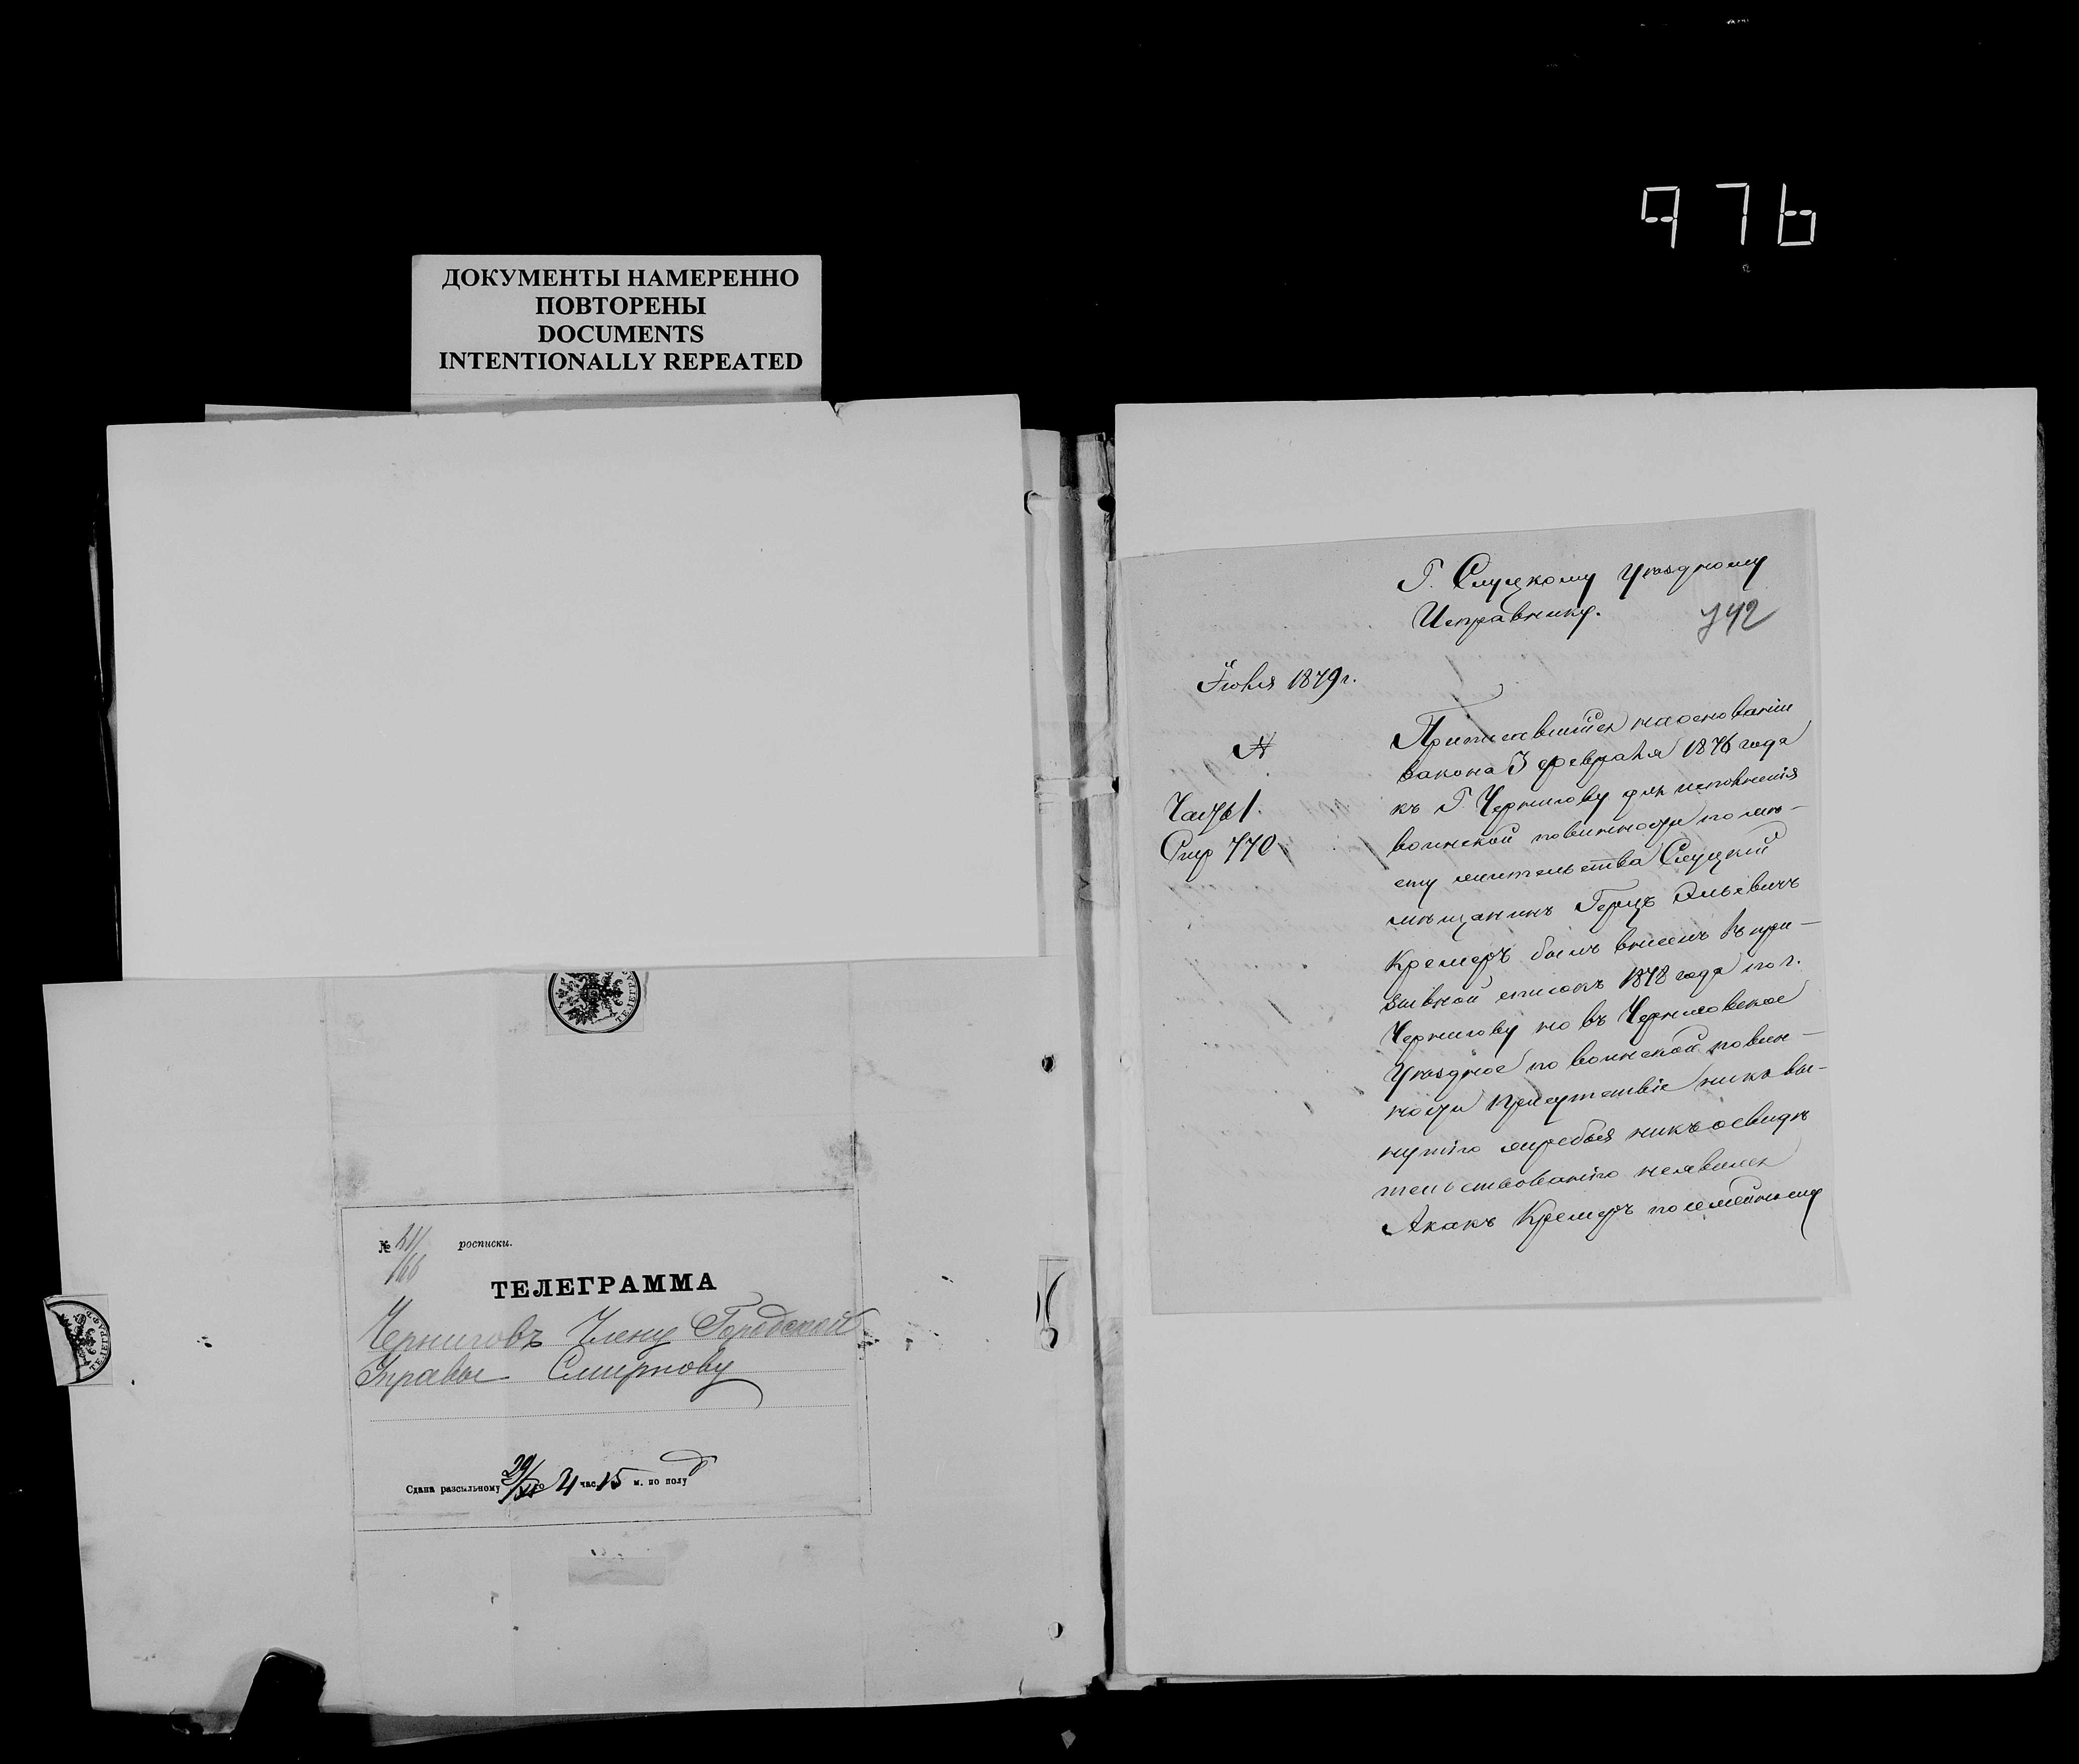 976
ДОКУМЕНТЫ НАМЕРЕННО
ПОВТОРЕНЫ
DOCUMENTS
INTENTIONALLY REPEATED
№ росписки.
ТЕЛЕГРАММА
Черниговъ Члену Городской
Управы Смирнову
Сдана разсыльному 29/XI го 4 час 15 м. по полу д
Г. Слуцкому Уѣздному
Исправнику.
742
Іюля 1879 г.
№
Часть 1.
Стр 770
Приписавшійся на основаніи
закона 3 февраля 1876 года
къ Г. Чернигову для исполненія
воинской повинности по мѣ-
сту жительства Слуцкій
мѣщанинъ Герцъ Эльевичъ
Кремеръ былъ внесенъ въ при-
зывной списокъ 1878 года по г.
Чернигову но въ Черниговское
Уѣздное по воинской повин-
ности Присутствіе ни къ вы-
нутію жребья ни къ освидѣ
тельствованію не явился
А какъ Кремеръ по семейному